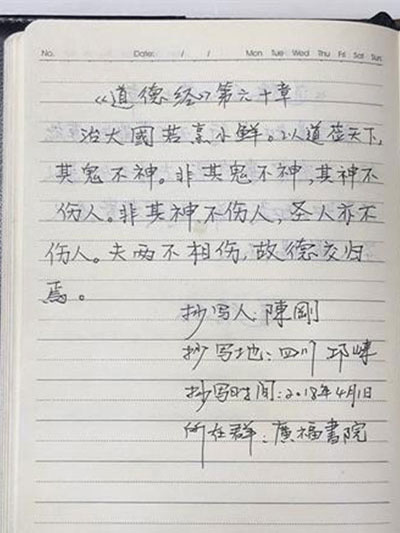 No. Date: / / Mon Tue Wed Thu Fri Sat Sun
《道德经》第六十章
治大國若烹小鲜。以道莅天下,
其鬼不神。非其鬼不神,其神不
伤人。非其神不伤人,圣人亦不
伤人。夫两不相伤,故德交归
焉。
抄写人:陳剛
抄写地:四川 邛崃
抄写时间:2018年4月1日
所在群:廣福書院